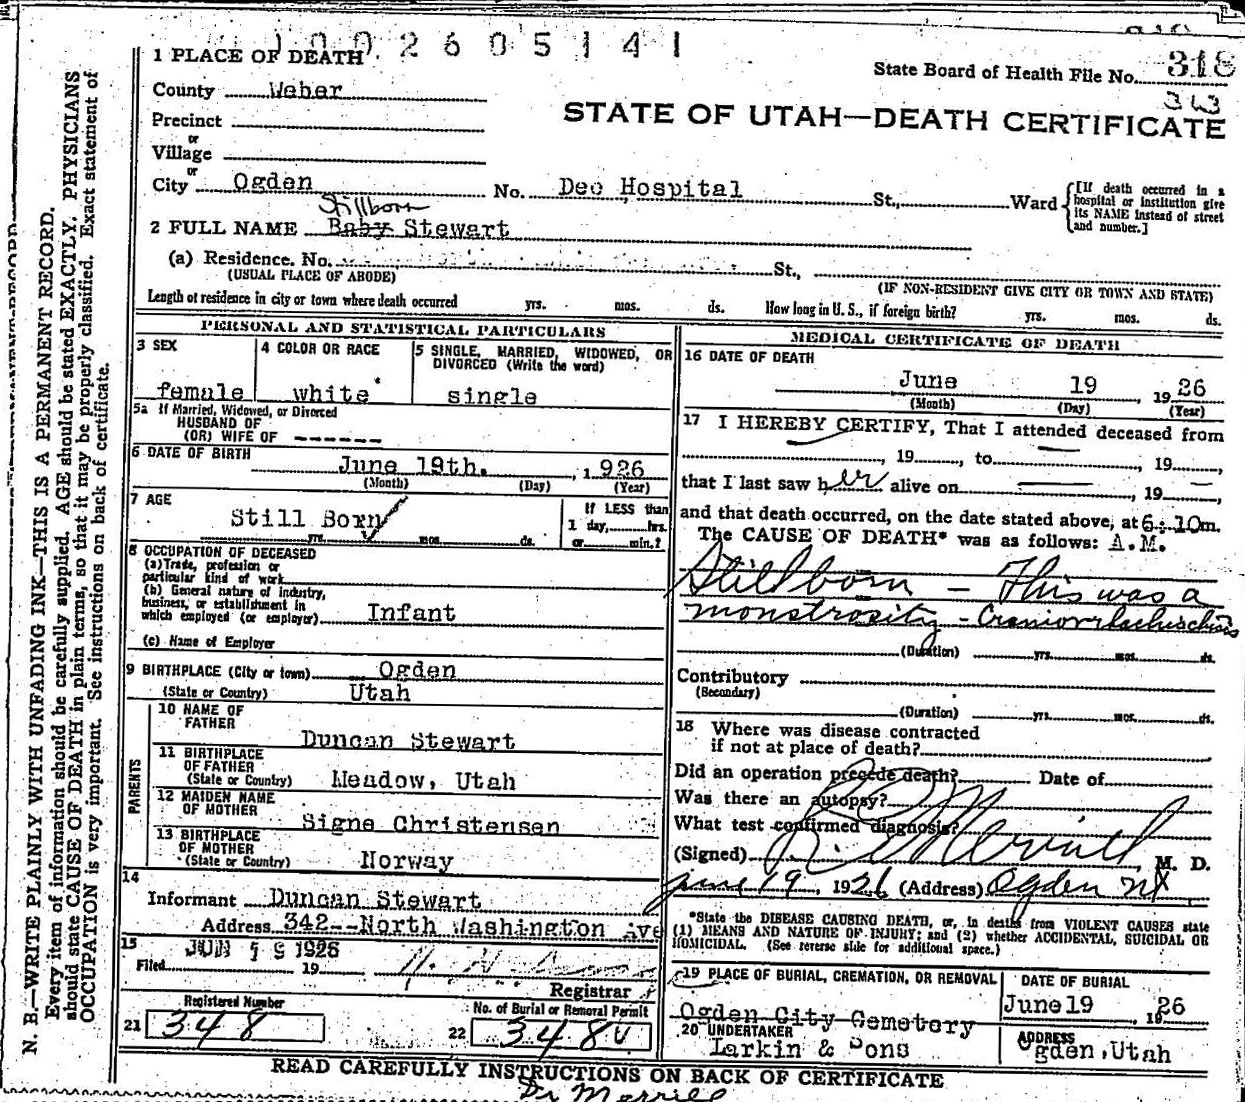 1002605141
1 PLACE OF DEATH
State Board of Health File No. 318
343
County Weber
STATE OF UTAH—DEATH CERTIFICATE
Precinct
or
Village
or
City Ogden No. Dee Hospital St., Ward
[If death occurred in a
hospital or institution give
its NAME instead of street
and number.]
Stillborn
2 FULL NAME Baby Stewart
(a) Residence. No. St.,
(USUAL PLACE OF ABODE) (IF NON-RESIDENT GIVE CITY OR TOWN AND STATE)
Length of residence in city or town where death occurred yrs. mos. ds. How long in U. S., if foreign birth? yrs. mos. ds.
PERSONAL AND STATISTICAL PARTICULARS
3 SEX
female
4 COLOR OR RACE
white
5 SINGLE, MARRIED, WIDOWED, OR
DIVORCED (Write the word)
single
5a If Married, Widowed, or Divorced
HUSBAND OF
(OR) WIFE OF ------
6 DATE OF BIRTH June 19th. , 1926
(Month) (Day) (Year)
7 AGE
Still Born
yrs. mos. ds.
If LESS than
1 day, hrs.
or min.?
8 OCCUPATION OF DECEASED
(a) Trade, profession or
particular kind of work
(b) General nature of industry,
business, or establishment in
which employed (or employer) Infant
(c) Name of Employer
9 BIRTHPLACE (City or town) Ogden
(State or Country) Utah
PARENTS
10 NAME OF
FATHER Duncan Stewart
11 BIRTHPLACE
OF FATHER
(State or Country) Meadow, Utah
12 MAIDEN NAME
OF MOTHER Signe Christensen
13 BIRTHPLACE
OF MOTHER
(State or Country) Norway
14
Informant Duncan Stewart
Address 342--North Washington Ave
15 JUN 19 1926
Filed 19
Registrar
Registered Number
21 348
No. of Burial or Removal Permit
22 348
MEDICAL CERTIFICATE OF DEATH
16 DATE OF DEATH
June 19 1926
(Month) (Day) (Year)
17 I HEREBY CERTIFY, That I attended deceased from
, 19 , to , 19 ,
that I last saw her alive on , 19 ,
and that death occurred, on the date stated above, at 6:10m.
The CAUSE OF DEATH* was as follows: A.M.
Stillborn — This was a
monstrosity - Craniorrhachischisis
(Duration) yrs. mos. ds.
Contributory
(Secondary)
(Duration) yrs. mos. ds.
18 Where was disease contracted
if not at place of death?
Did an operation precede death? Date of
Was there an autopsy?
What test confirmed diagnosis?
(Signed) Merrill, M. D.
June 19, 1926 (Address) Ogden
*State the DISEASE CAUSING DEATH, or, in deaths from VIOLENT CAUSES state
(1) MEANS AND NATURE OF INJURY; and (2) whether ACCIDENTAL, SUICIDAL OR
HOMICIDAL. (See reverse side for additional space.)
19 PLACE OF BURIAL, CREMATION, OR REMOVAL
Ogden City Cemetery
DATE OF BURIAL
June 19 , 1926
20 UNDERTAKER
Larkin & Sons
ADDRESS
Ogden, Utah
READ CAREFULLY INSTRUCTIONS ON BACK OF CERTIFICATE
Dr Merrill
N. B.—WRITE PLAINLY WITH UNFADING INK—THIS IS A PERMANENT RECORD.
Every item of information should be carefully supplied. AGE should be stated EXACTLY. PHYSICIANS
should state CAUSE OF DEATH in plain terms, so that it may be properly classified. Exact statement of
OCCUPATION is very important. See instructions on back of certificate.